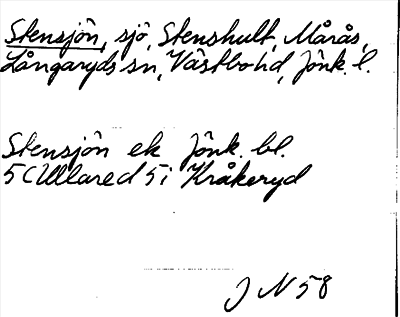 Stensjön, sjö, Stenshult, Mårås,
Långaryds sn, Västbo hd, Jönk. l.
Stensjön ek Jönk. bl.
5C Ullared 5i Kråkeryd
J N 58